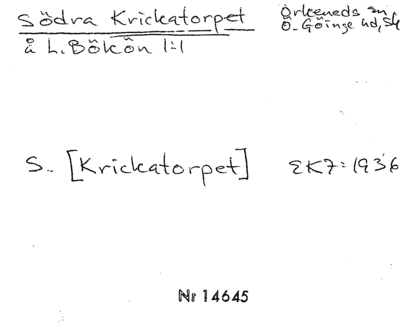 Södra Krickatorpet
å L. Bökön 1:1
Örkeneds sn
Ö. Göinge hd, Sk
S.. [Krickatorpet] EK7: 1936
Nr 14645